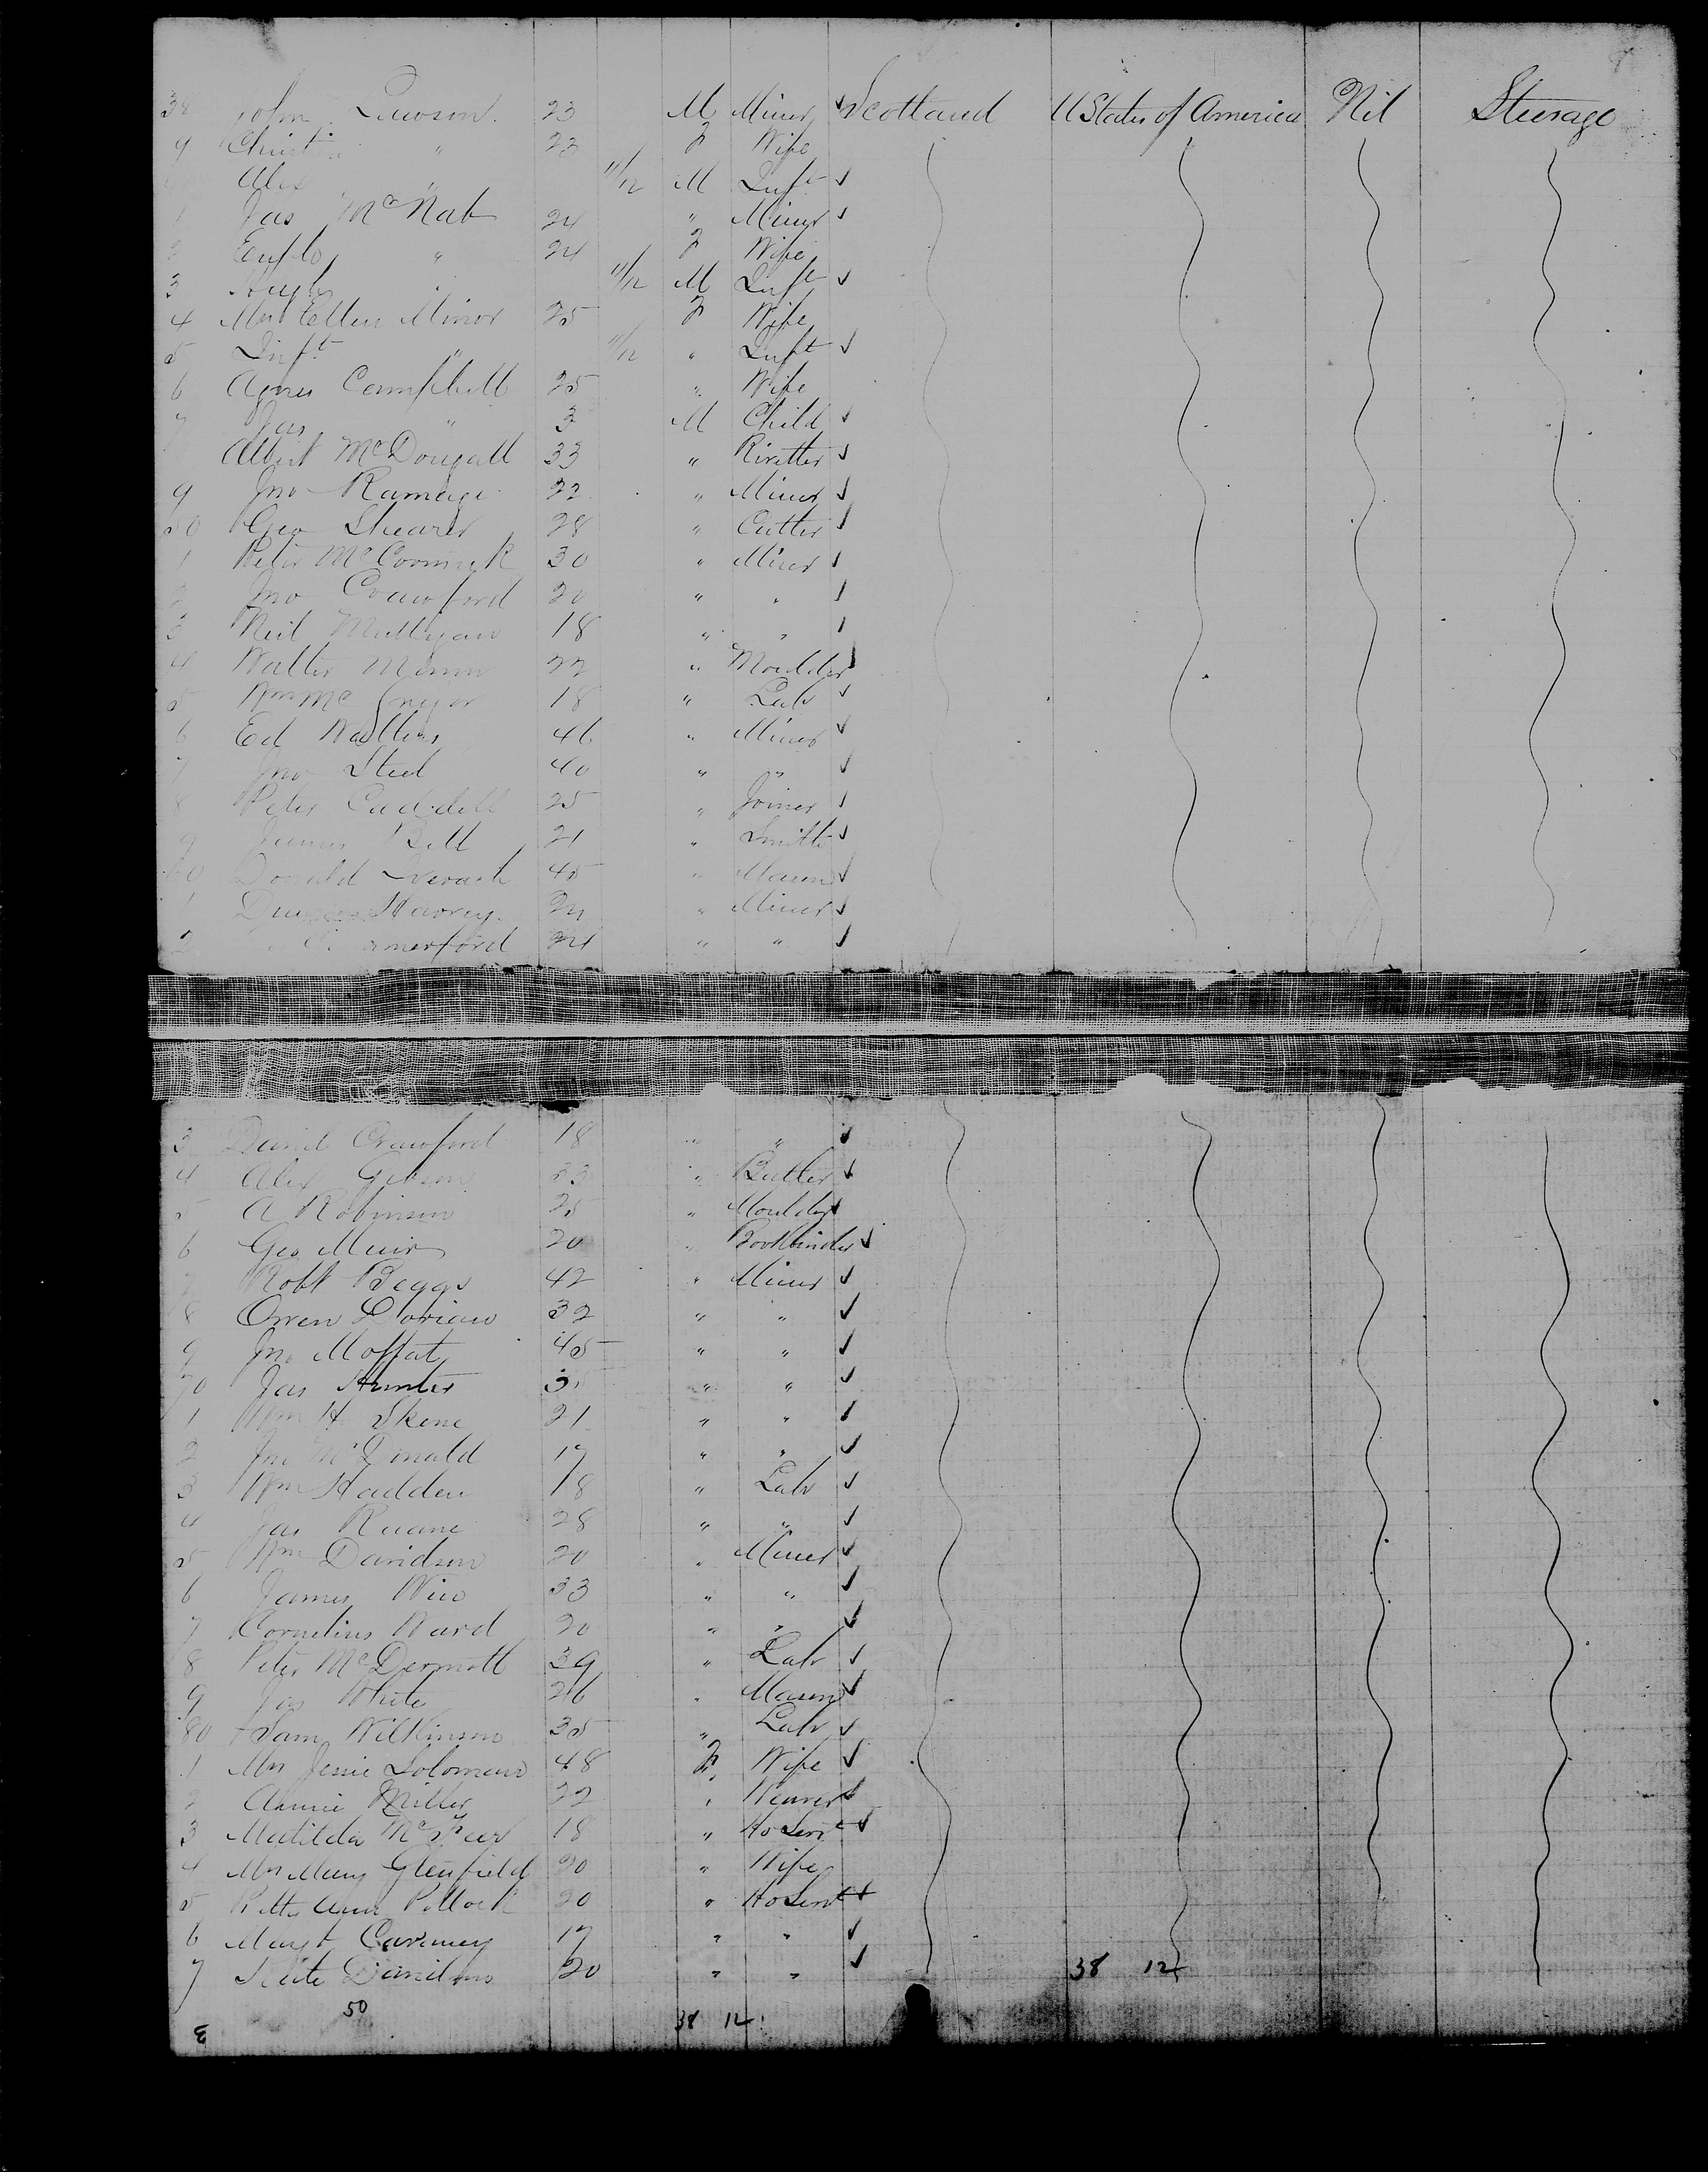 38 John Lawson 23 M Miner Scotland U States of America Nil Steerage
9 Christi " 23 F Wife
Alex " 11/12 M Inft
1 Jas McNab 24 " Miner
2 Euph " 24 F Wife
3 Hugh " 11/12 M Inft
4 Mrs Ellen Minor 25 F Wife
5 Inft " 11/12 " Inft
6 Agnes Campbell 25 " Wife
7 Jas " 3 M Child
Albert McDougall 33 " Rivetter
9 Jno Ramage 22 " Miner
50 Geo Shearer 28 " Cutter
1 Peter McCormick 30 " Miner
2 Jno Crawford 20 " "
3 Neil Mulligan 18 " "
4 Walter 22 " Moulder
5 Wm McGregor 18 " Lab
6 Ed Walters 46 " Miner
7 Jno Steel 40 " "
8 Peter Caddell 25 " Joiner
9 James Bell 21 " Smith
60 Donald 45 " Mason
1 Harvey 24 " Miner
2 24 " "
3 David Crawford 18 " "
4 Alex Gibson 33 " Butler
5 A Robinson 25 " Moulder
6 Geo Muir 20 " Bookbinder
7 Robt Beggs 42 " Miner
8 Owen Dorian 32 " "
9 Jno Moffat 45 " "
70 Jas Hunter " "
1 Wm H Skene 21 " "
2 Jno McDonald 17 " "
3 Wm Hadden 18 " Lab
4 Jas Ruane 28 " "
5 Wm Davidson 20 " Miner
6 James Weir 33 " "
7 Cornelius Ward 20 " "
8 Peter McDermott 39 " Lab
9 Jas White 26 " Mason
80 Sam Wilkinson 35 " Lab
1 Mrs Jessie Soloman 48 F Wife
2 Annie Miller 22 " Weaver
3 Matilda 18 " Ho Servt
4 Mrs Mary Glenfield 20 " Wife
5 Ann Pollock 20 " Ho Servt
6 Margt 17 " "
7 20 " " 38 12
50 38 12